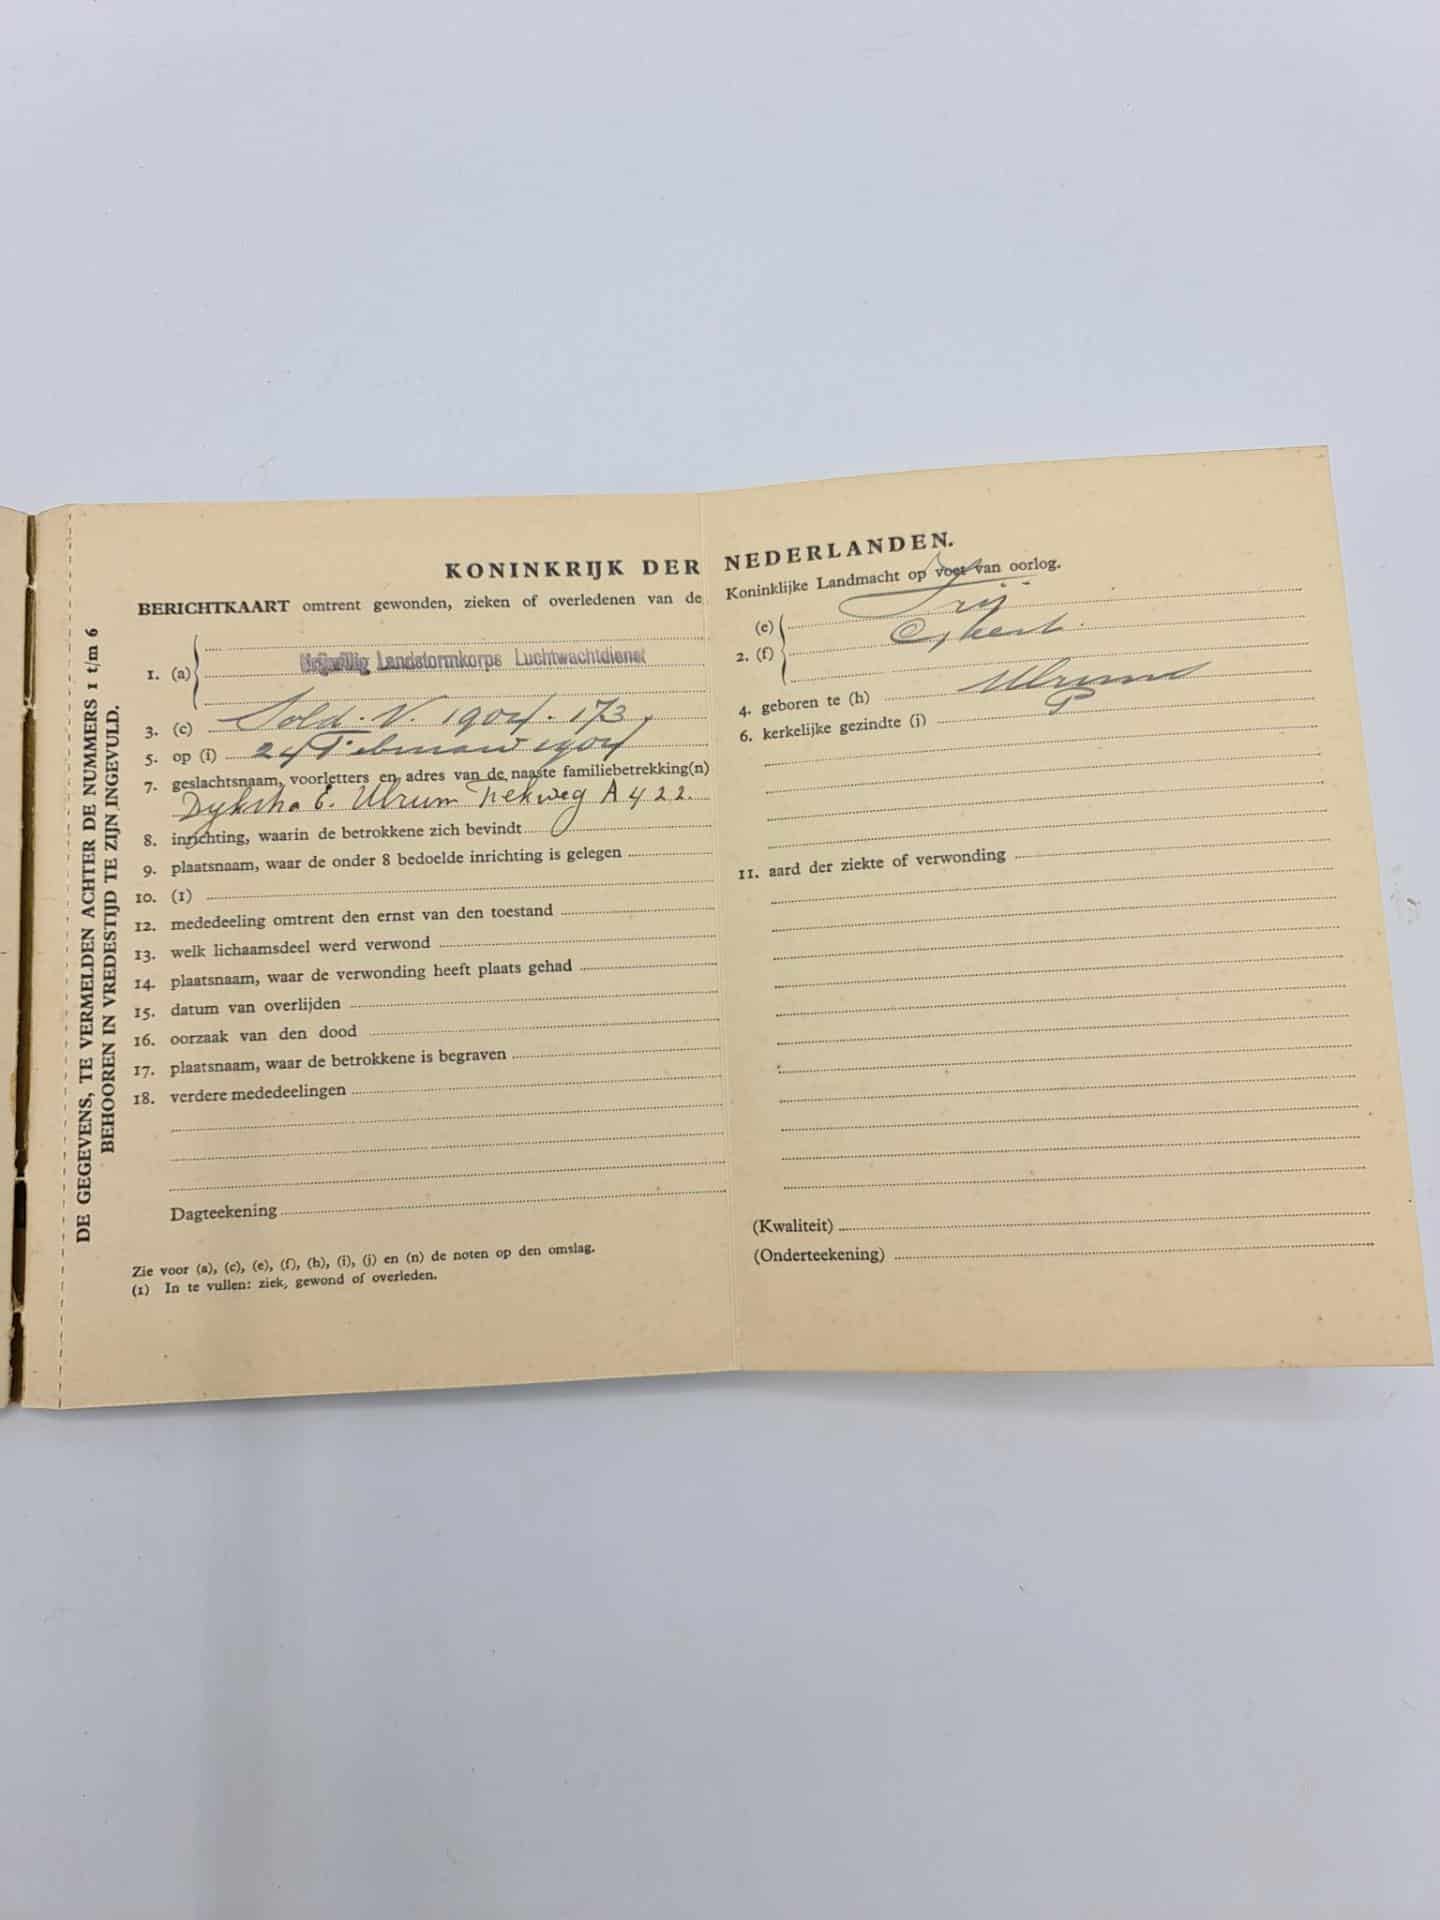 DE GEGEVENS, TE VERMELDEN ACHTER DE NUMMERS 1 t/m 6
BEHOOREN IN VREDESTIJD TE ZIJN INGEVULD.
KONINKRIJK DER NEDERLANDEN.
BERICHTKAART omtrent gewonden, zieken of overledenen van de Koninklijke Landmacht op voet van oorlog.
1. (a) Vrijwillig Landstormkorps Luchtwachtdienst
3. (c) Sold. V. 1904. 173
5. op (i) 24 Februari 1904
7. geslachtsnaam, voorletters en adres van de naaste familiebetrekking(n)
E. Ulrum A 422.
8. inrichting, waarin de betrokkene zich bevindt
9. plaatsnaam, waar de onder 8 bedoelde inrichting is gelegen
10. (1)
12. mededeeling omtrent den ernst van den toestand
13. welk lichaamsdeel werd verwond
14. plaatsnaam, waar de verwonding heeft plaats gehad
15. datum van overlijden
16. oorzaak van den dood
17. plaatsnaam, waar de betrokkene is begraven
18. verdere mededeelingen
Dagteekening
Zie voor (a), (c), (e), (f), (h), (i), (j) en (n) de noten op den omslag.
(1) In te vullen: ziek, gewond of overleden.
(e)
2. (f) Egbert
4. geboren te (h) Ulrum
6. kerkelijke gezindte (j)
11. aard der ziekte of verwonding
(Kwaliteit)
(Onderteekening)